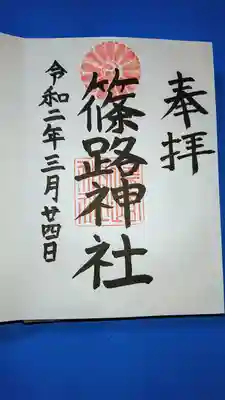 奉拝
篠路神社
令和二年三月廿四日